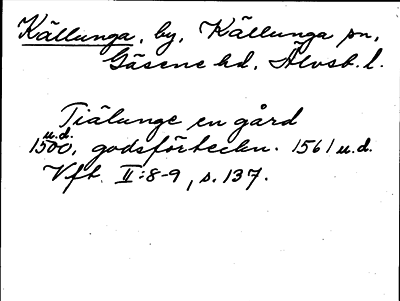 Källunga, by, Källunga sn,
Gäsene hd, Älvsb. l.
Tiälunge en gård
u.d.
1500, godsförteckn. 1561 u.d.
Vft. II:8-9, s. 137.